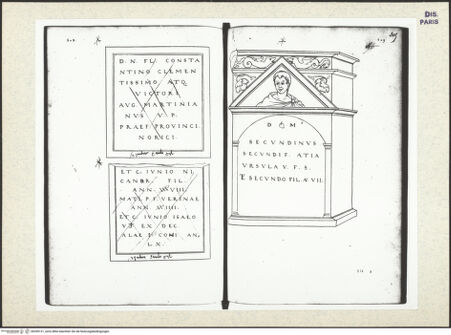 DIS.
PARIS
D. N. FL. CONSTA
NTINO CLEMEN
TISSIMO ATQ
VICTORI
AVG MARTINIA
NVS V. P.
PRAEF PROVINCI.
NORICI.
ET C. IVNIO NI
CANDR. FIL.
ANN. XVIII
MATI. P. F. VERINAE
ANN. VIII.
ET C. IVNIO ISAEO
EX DEC.
CONI. AN.
LX.
D M
SECVNDINVS
SECVNDI F. ATIA
VRSVLA V. F. S.
ET SECVNDO FIL. Æ VII.